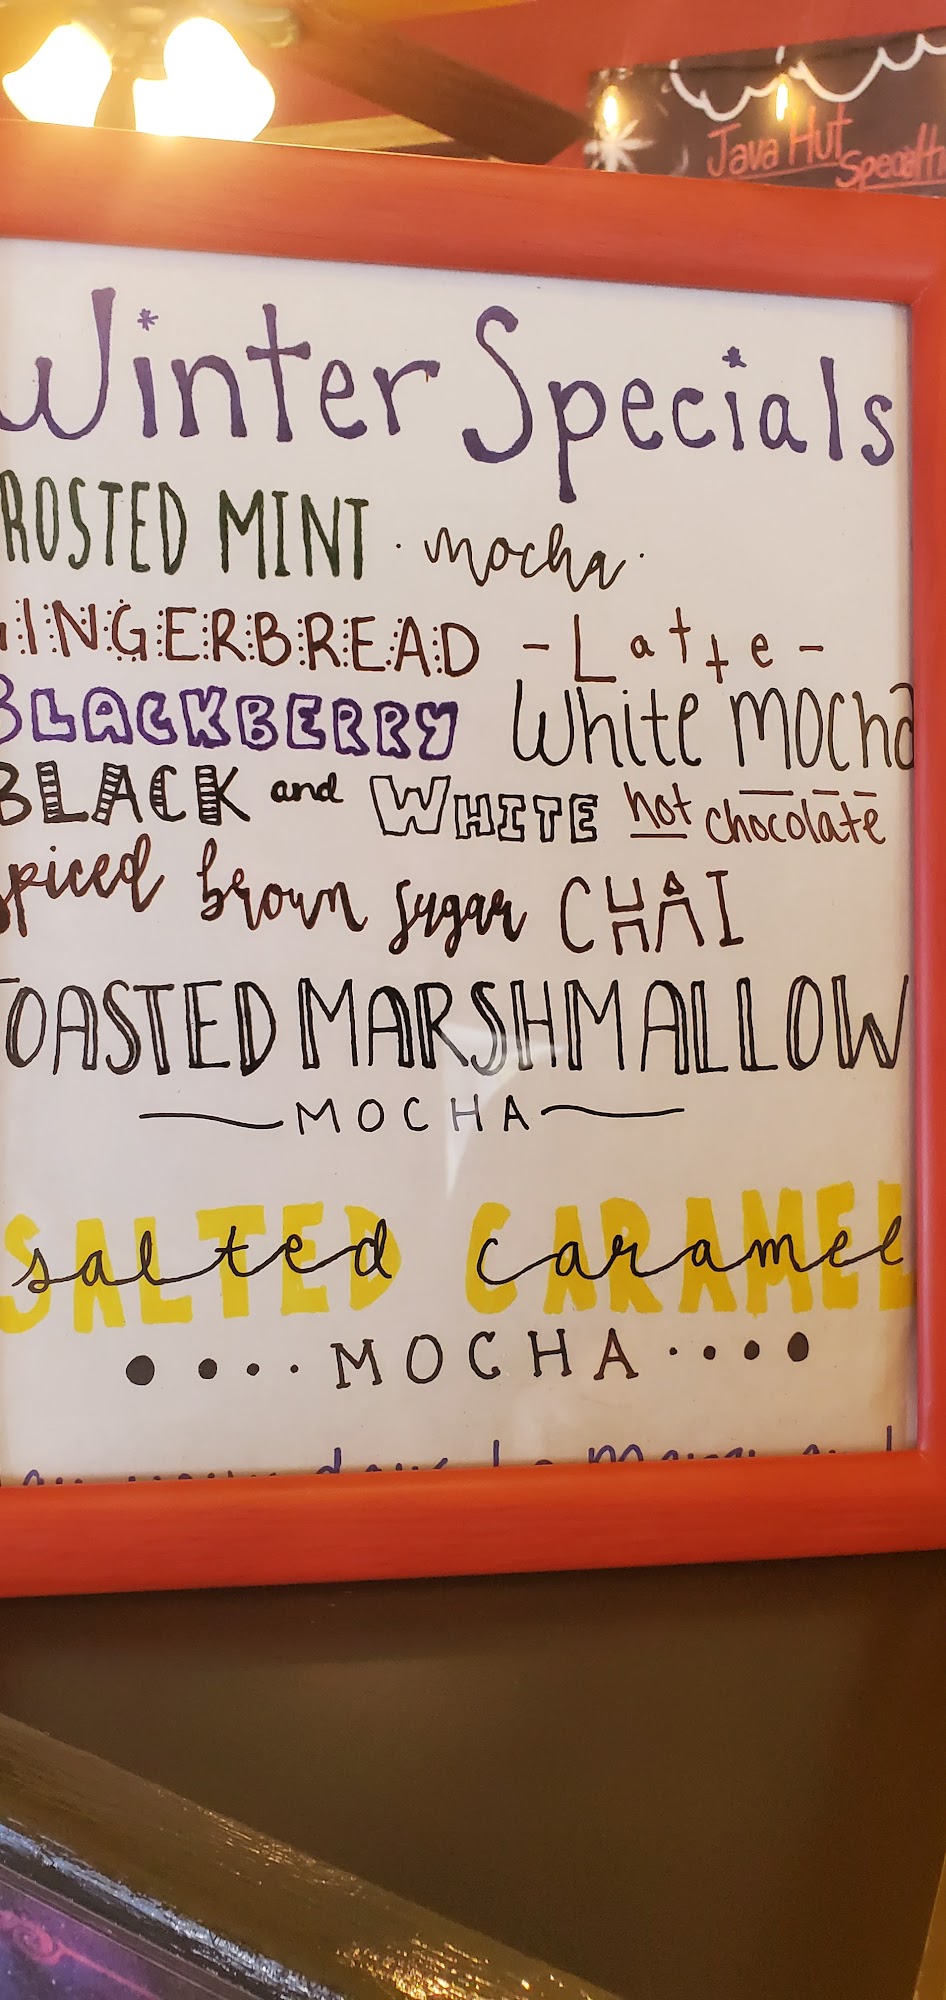 Java Hut
Specialti
Winter Specials
ROSTED MINT · mocha ·
GINGERBREAD - Latte -
BLACKBERRY White MOCHA
BLACK and WHITE hot chocolate
Spiced brown sugar CHAI
TOASTED MARSHMALLOW
MOCHA
SALTED CARAMEL
salted caramel
MOCHA